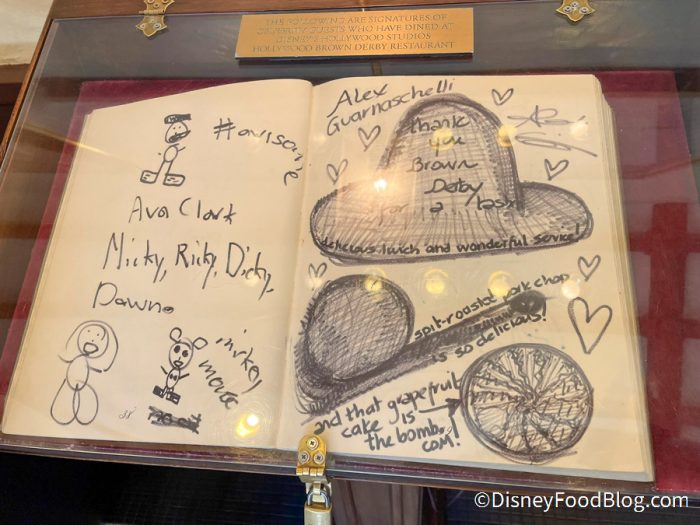 THE FOLLOWING ARE SIGNATURES OF
CELEBRITY GUESTS WHO HAVE DINED AT
DISNEY'S HOLLYWOOD STUDIOS
HOLLYWOOD BROWN DERBY RESTAURANT
#awsome
Ava Clark
Micky, Ricky, Dicky,
Dawn.
mickey
mouse
Alex
Guarnaschelli
thank
you
Brown
Derby
for a
delicious lunch and wonderful service!
spit-roasted pork chop
is so delicious!
and that grapefruit
cake is
the bomb.
com!
©DisneyFoodBlog.com